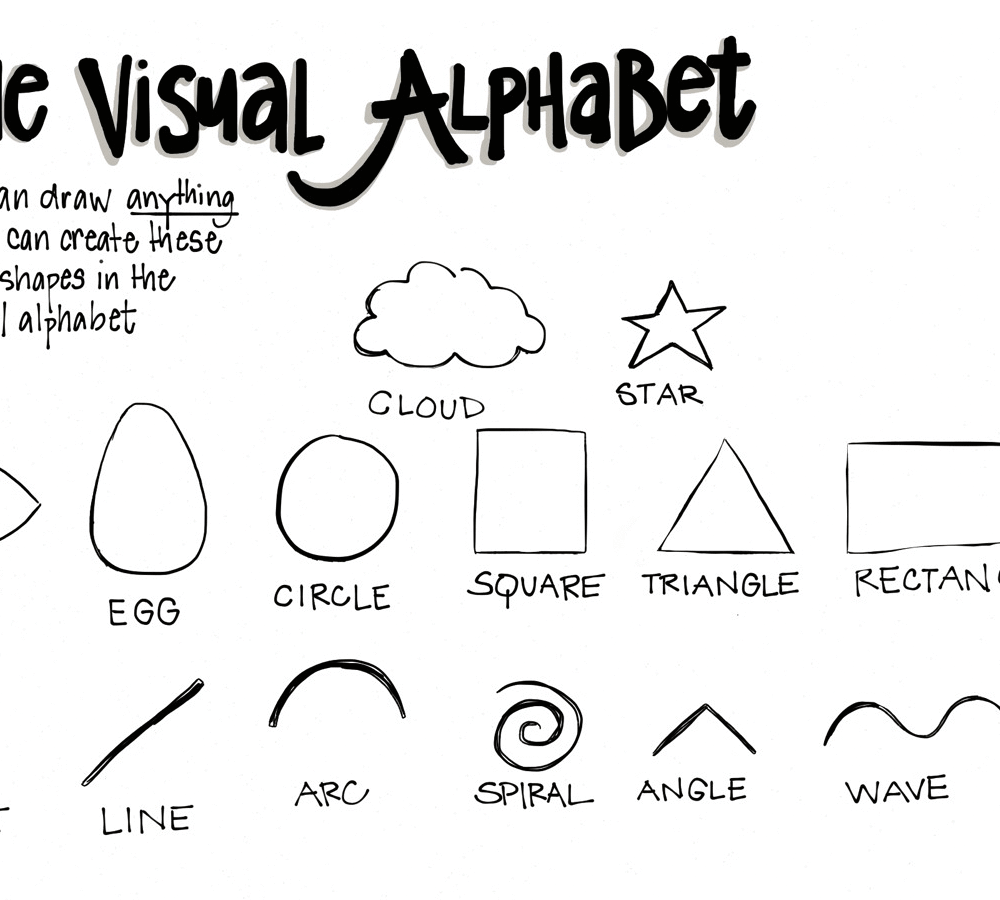 he Visual Alphabet
an draw anything
can create these
shapes in the
l alphabet
CLOUD
STAR
EGG
CIRCLE
SQUARE
TRIANGLE
RECTANG
LINE
ARC
SPIRAL
ANGLE
WAVE
T